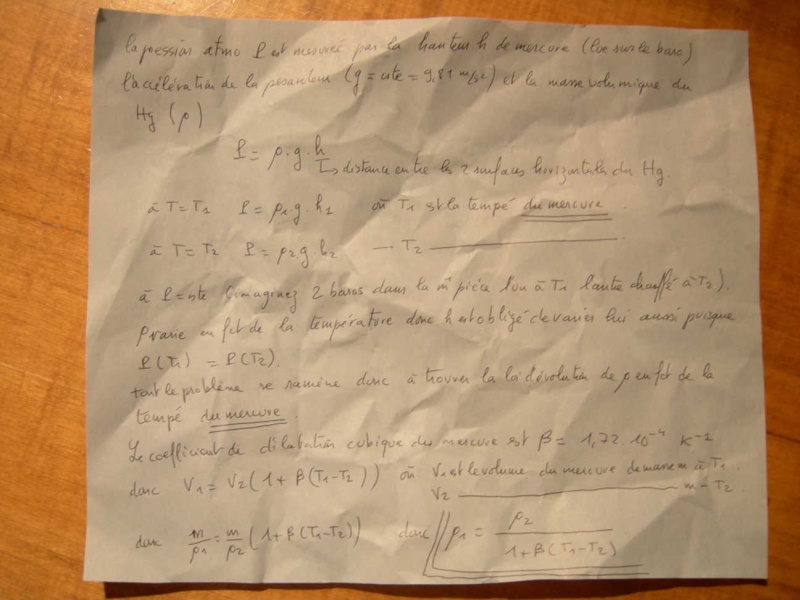 la pression atmo P est mesurée par la hauteur h de mercure (lue sur le baro)
l'accélération de la pesanteur (g = cste = 9,81 m/s²) et la masse volumique du
Hg (ρ)
P = ρ.g.h
↳ distance entre les 2 surfaces horizontales du Hg.
à T = T1 P = ρ1.g.h1 où T1 est la tempé du mercure.
à T = T2 P = ρ2.g.h2 — T2 —.
à P = cste (imaginez 2 baros dans la m̂ pièce l'un à T1 l'autre chauffé à T2).
ρ varie en fct de la température donc h est obligé de varier lui aussi puisque
P(T1) = P(T2).
tout le problème se ramène donc à trouver la loi d'évolution de ρ en fct de la
tempé du mercure.
Le coefficient de dilatation cubique du mercure est β = 1,72.10⁻⁴ K⁻¹
donc V1 = V2(1+β(T1-T2)) où V1 est le volume du mercure de masse m à T1.
V2 — m — T2.
donc m/ρ1 = m/ρ2 (1+β(T1-T2)) donc ρ1 = ρ2/(1+β(T1-T2))